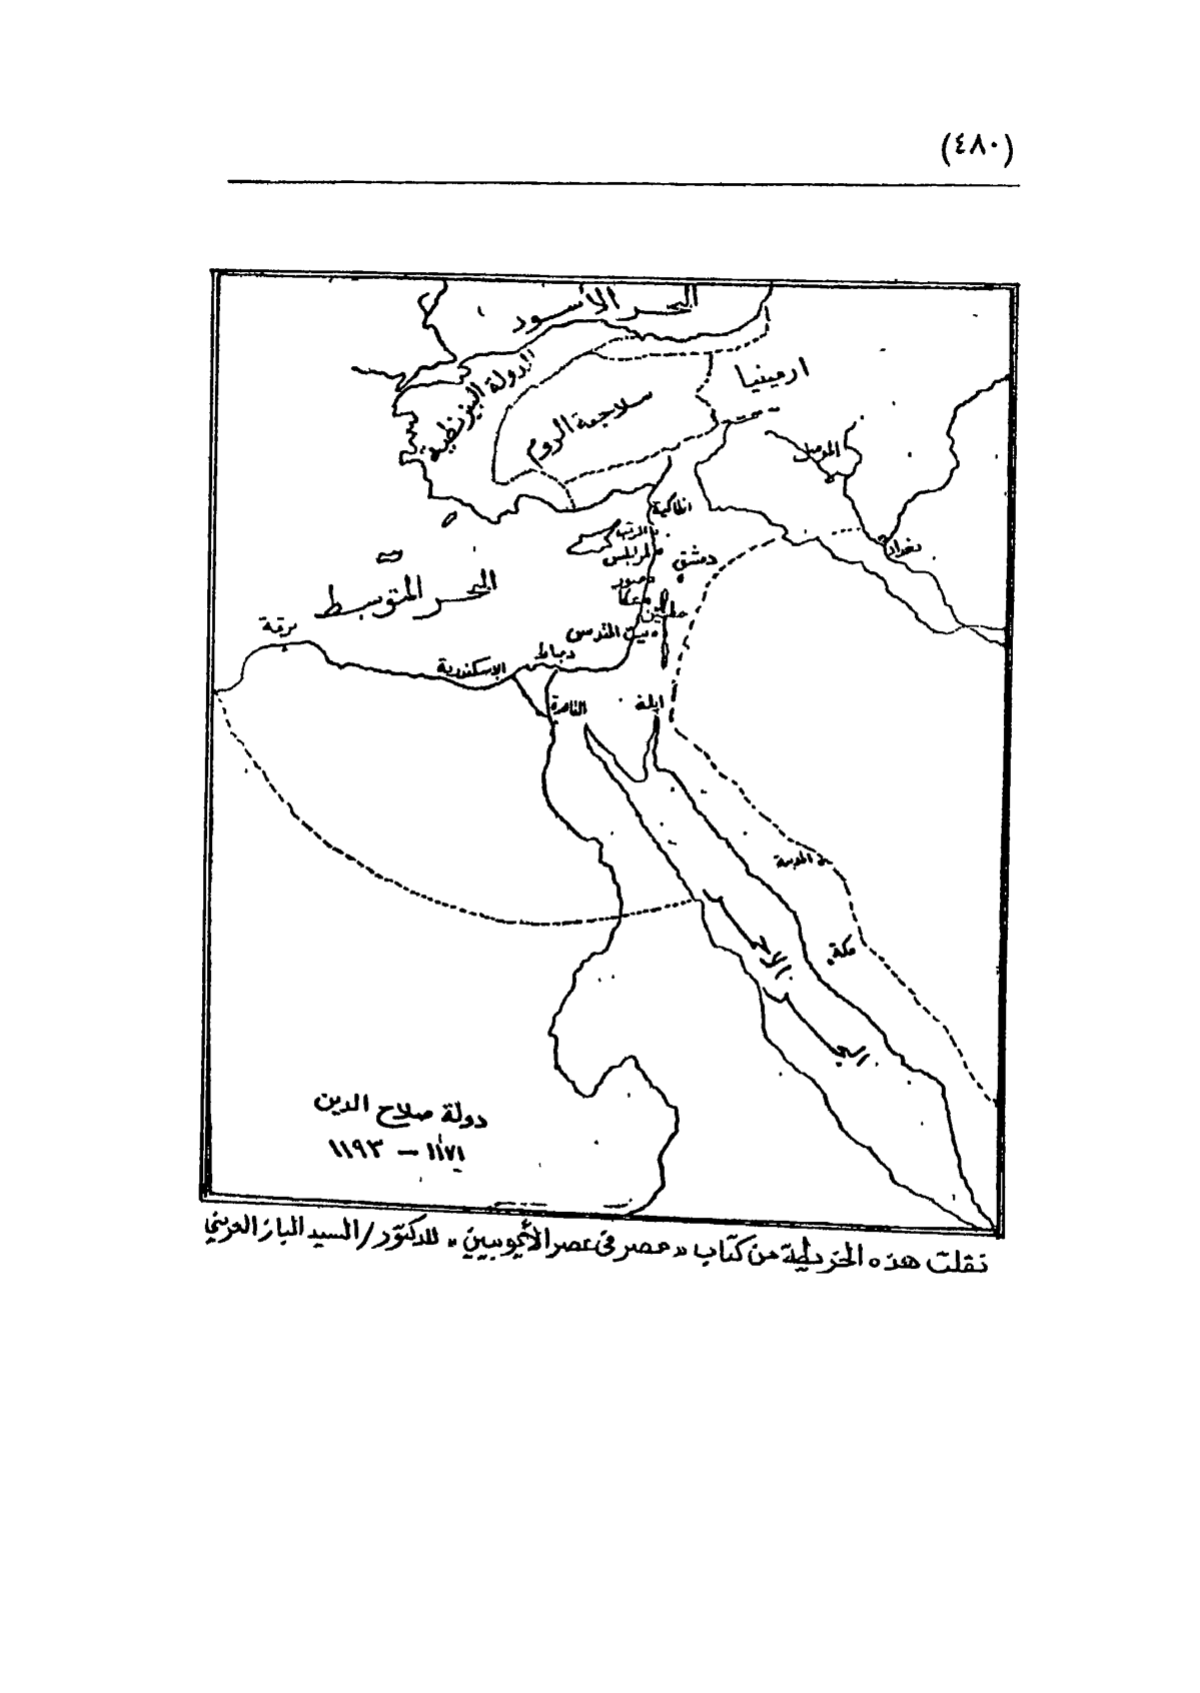 (٤٨٠)
البحر الأسود
الدولة البيزنطية
سلاجقة الروم
ارمينيا
الموصل
انطاكية
المرقب
طرابلس
دمشق
بغداد
صور
عكا
حطين
البحر المتوسط
برقة
بيت المقدس
دمياط
الإسكندرية
القاهرة
ايلة
المدينة
مكة
البحر الأحمر
دولة صلاح الدين
١١٧١ – ١١٩٣
نقلت هذه الخريطة من كتاب « مصر فى عصر الأيوبيين » للدكتور / السيد الباز العرينى